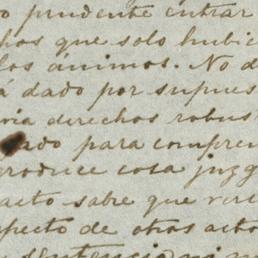 o prudente entrar
hos que solo hubie
los ánimos. No d
á dado por supues
ria derechos robus
ado para compren
produce cosa juzg
acto sabe que vers
specto de otros acto
sentencia ni